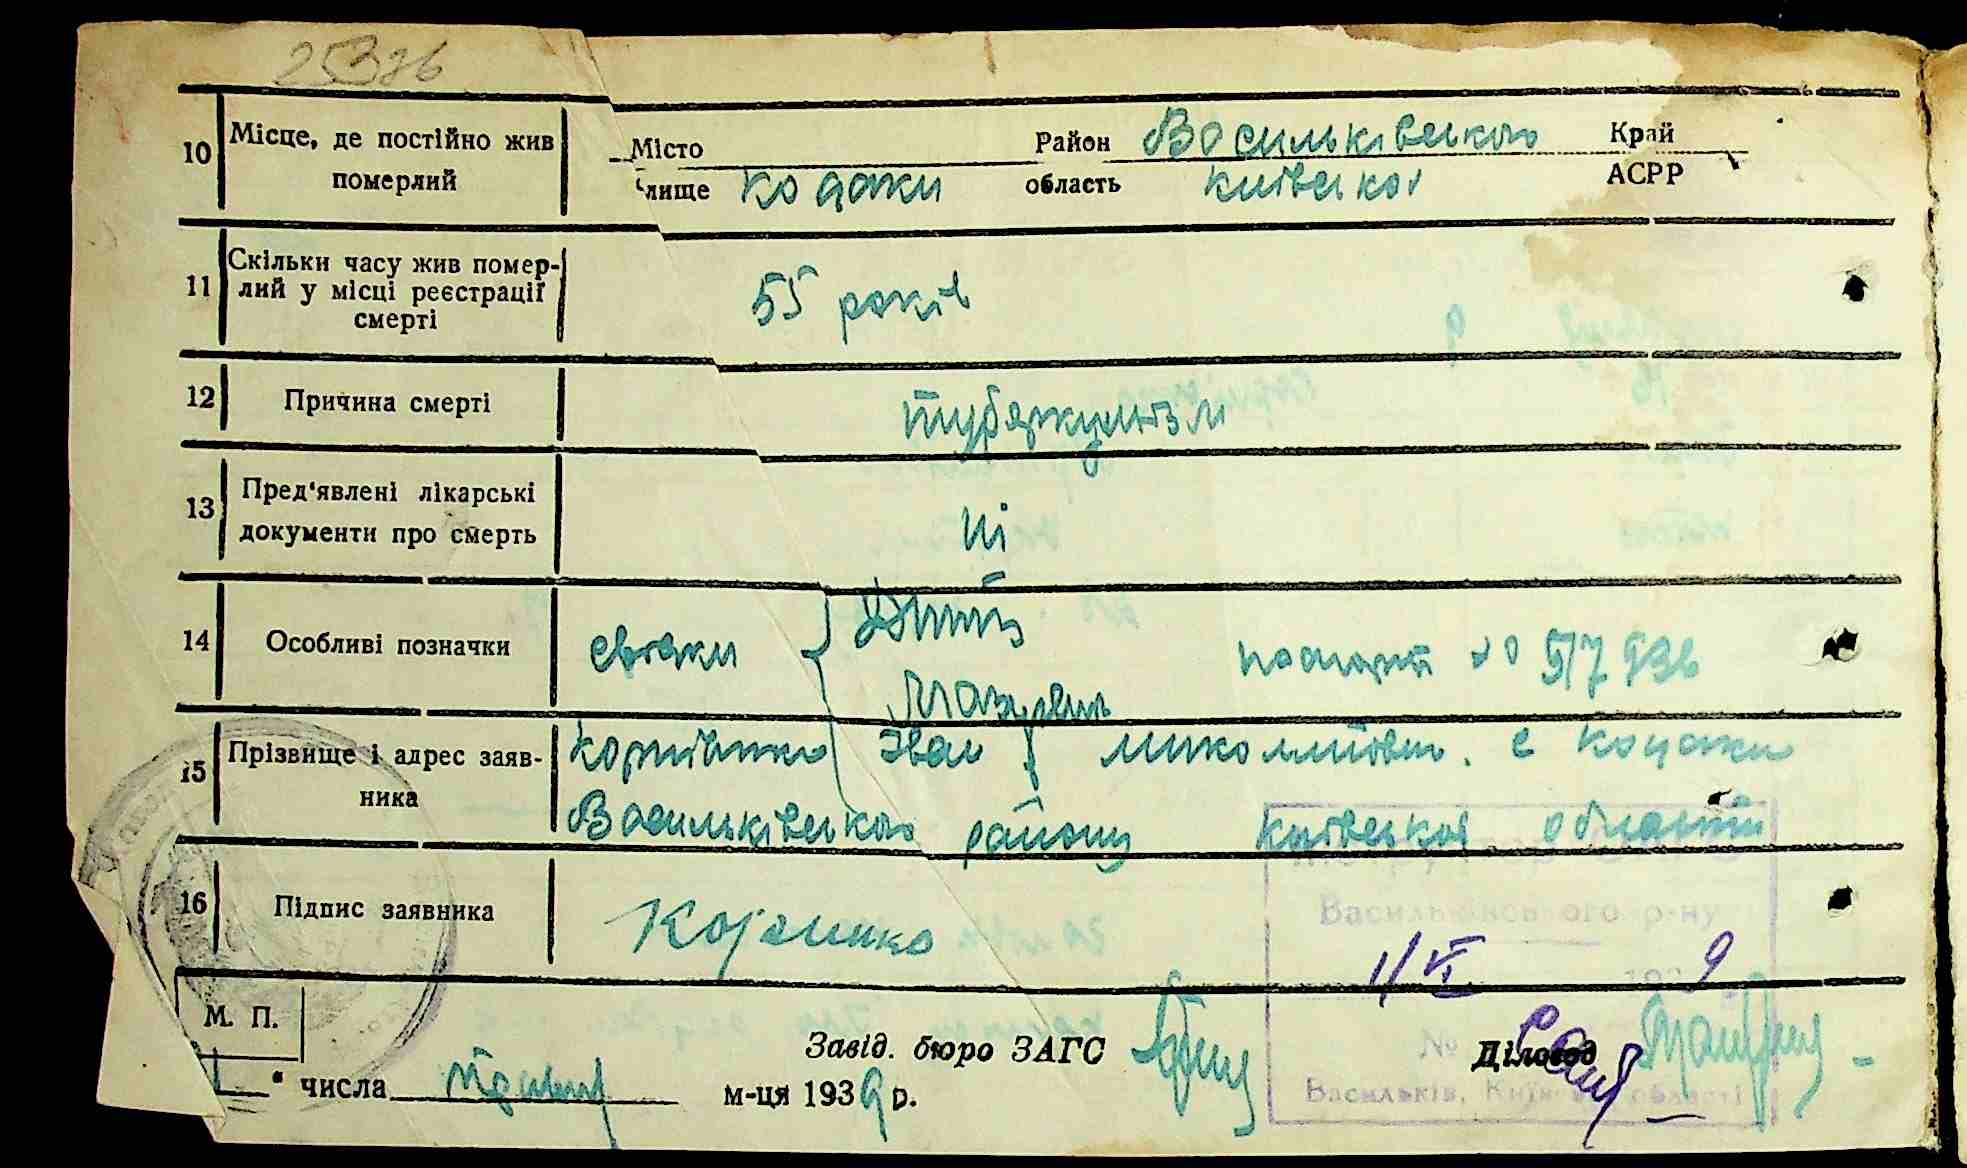 25326
10 Місце, де постійно жив померлий
Місто Район Васильківського Край
лище Кодаки область Київської АСРР
11 Скільки часу жив помер-
лий у місці реєстрації
смерті
55 років
12 Причина смерті
туберкульозм
13 Пред'явлені лікарські
документи про смерть
Ні
14 Особливі позначки
свідки
паспорт № 517936
15 Прізвище і адрес заяв-
ника
Корнієнко Іван Миколайович с Кодаки
Васильківського району Київської області
16 Підпис заявника
Корєнико
Васильківського р-ну
1/VI 1939
№
Васильків, Київської області
М. П.
Завід. бюро ЗАГС
Діловод
числа травня м-ця 1939 р.